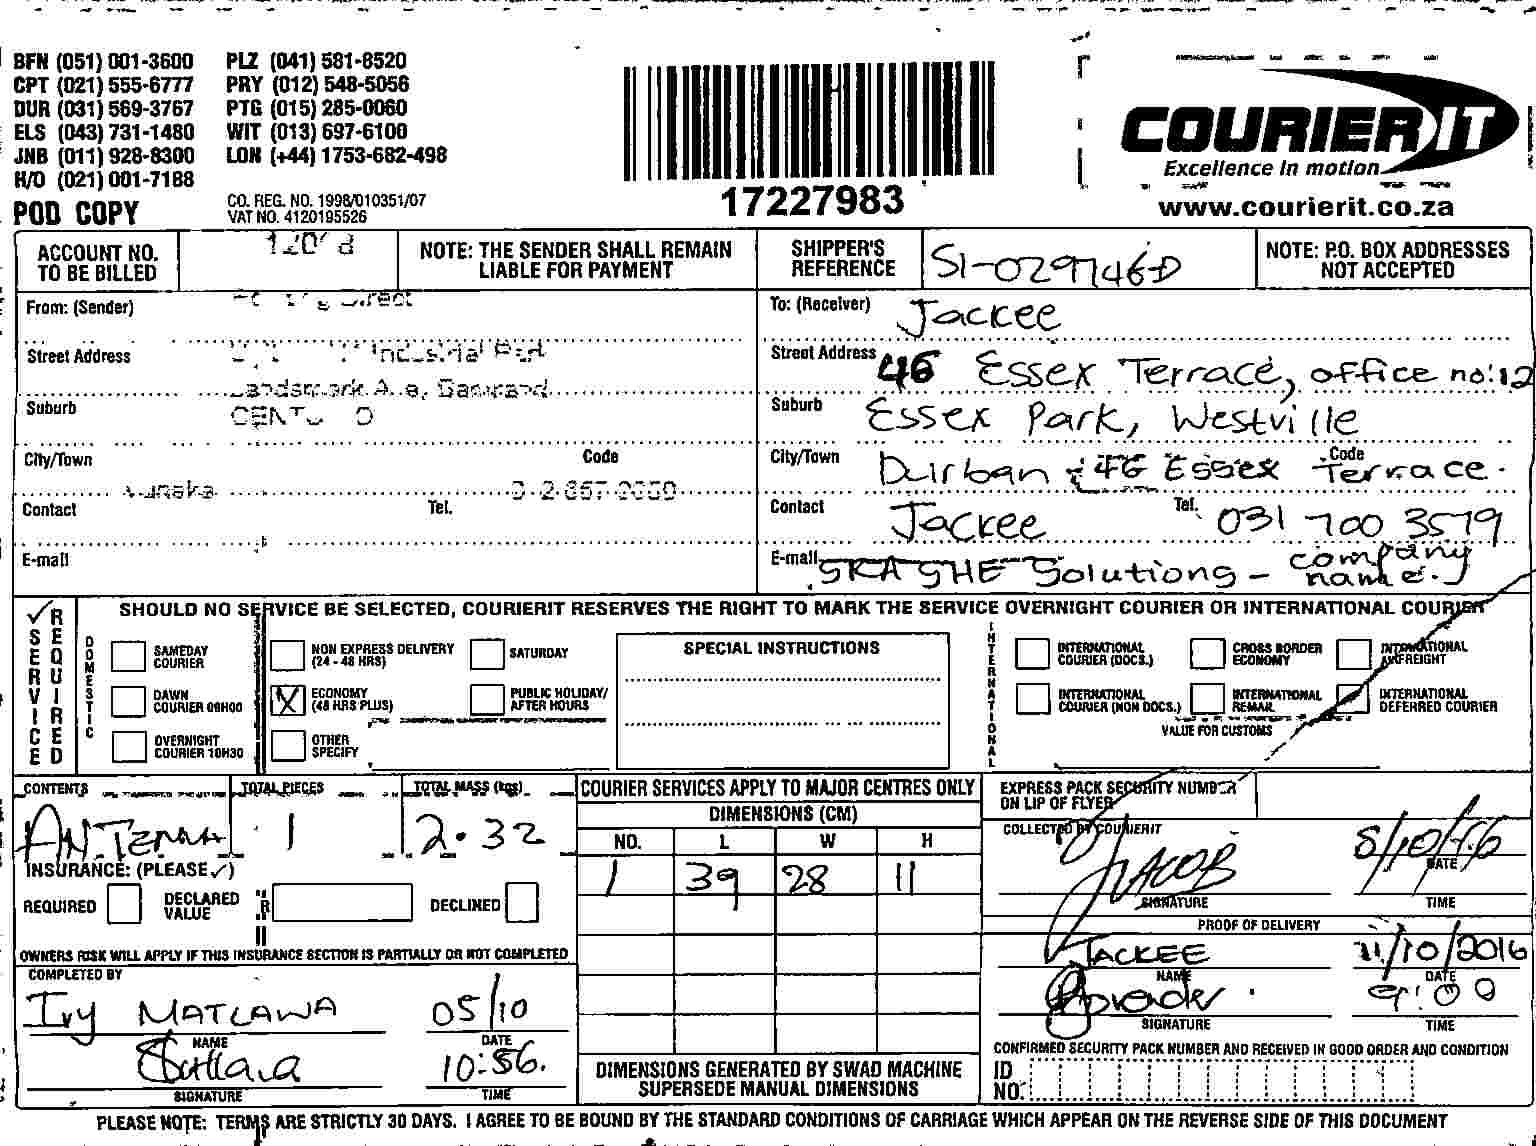 BFN (051) 001-3600 PLZ (041) 581-8520
CPT (021) 555-6777 PRY (012) 548-5056
DUR (031) 569-3767 PTG (015) 285-0060
ELS (043) 731-1480 WIT (013) 697-6100
JNB (011) 928-8300 LON (+44) 1753-682-498
H/O (021) 001-7188
POD COPY
CO. REG. NO. 1998/010351/07
VAT NO. 4120195526
17227983
COURIER IT
Excellence in motion
www.courierit.co.za
ACCOUNT NO. TO BE BILLED
NOTE: THE SENDER SHALL REMAIN LIABLE FOR PAYMENT
SHIPPER'S REFERENCE
SI-029746-D
NOTE: P.O. BOX ADDRESSES NOT ACCEPTED
From: (Sender) Direct
Street Address Industrial Park
Suburb
City/Town Code
Contact Tel.
E-mail
To: (Receiver) Jackee
Street Address 46 Essex Terrace, office no:12
Suburb Essex Park, Westville
City/Town Durban 46 Essex Terrace. Code
Contact Jackee Tel. 031 700 3579
E-mail SKA SHE Solutions - company name.
✓ SERVICE REQUIRED
SHOULD NO SERVICE BE SELECTED, COURIERIT RESERVES THE RIGHT TO MARK THE SERVICE OVERNIGHT COURIER OR INTERNATIONAL COURIER
DOMESTIC
SAMEDAY COURIER
DAWN COURIER 09H00
OVERNIGHT COURIER 10H30
NON EXPRESS DELIVERY (24 - 48 HRS)
X ECONOMY (48 HRS PLUS)
OTHER SPECIFY
SATURDAY
PUBLIC HOLIDAY/ AFTER HOURS
SPECIAL INSTRUCTIONS
INTERNATIONAL
INTERNATIONAL COURIER (DOCS.)
INTERNATIONAL COURIER (NON DOCS.)
CROSS BORDER ECONOMY
INTERNATIONAL REMAIL
INTERNATIONAL AIRFREIGHT
INTERNATIONAL DEFERRED COURIER
VALUE FOR CUSTOMS
CONTENTS TOTAL PIECES TOTAL MASS (kgs)
ANTENNA 1 2.32
INSURANCE: (PLEASE ✓)
REQUIRED DECLARED VALUE R DECLINED
OWNERS RISK WILL APPLY IF THIS INSURANCE SECTION IS PARTIALLY OR NOT COMPLETED
COMPLETED BY
Ivy MATLAWA 05/10
NAME DATE
10:56.
SIGNATURE TIME
COURIER SERVICES APPLY TO MAJOR CENTRES ONLY
DIMENSIONS (CM)
NO. L W H
1 39 28 11
DIMENSIONS GENERATED BY SWAD MACHINE SUPERSEDE MANUAL DIMENSIONS
EXPRESS PACK SECURITY NUMBER ON LIP OF FLYER
COLLECTED BY COURIERIT
JACOB 5/10/16
DATE
SIGNATURE TIME
PROOF OF DELIVERY
JACKEE 11/10/2016
NAME DATE
9:00
SIGNATURE TIME
CONFIRMED SECURITY PACK NUMBER AND RECEIVED IN GOOD ORDER AND CONDITION
ID NO.
PLEASE NOTE: TERMS ARE STRICTLY 30 DAYS. I AGREE TO BE BOUND BY THE STANDARD CONDITIONS OF CARRIAGE WHICH APPEAR ON THE REVERSE SIDE OF THIS DOCUMENT